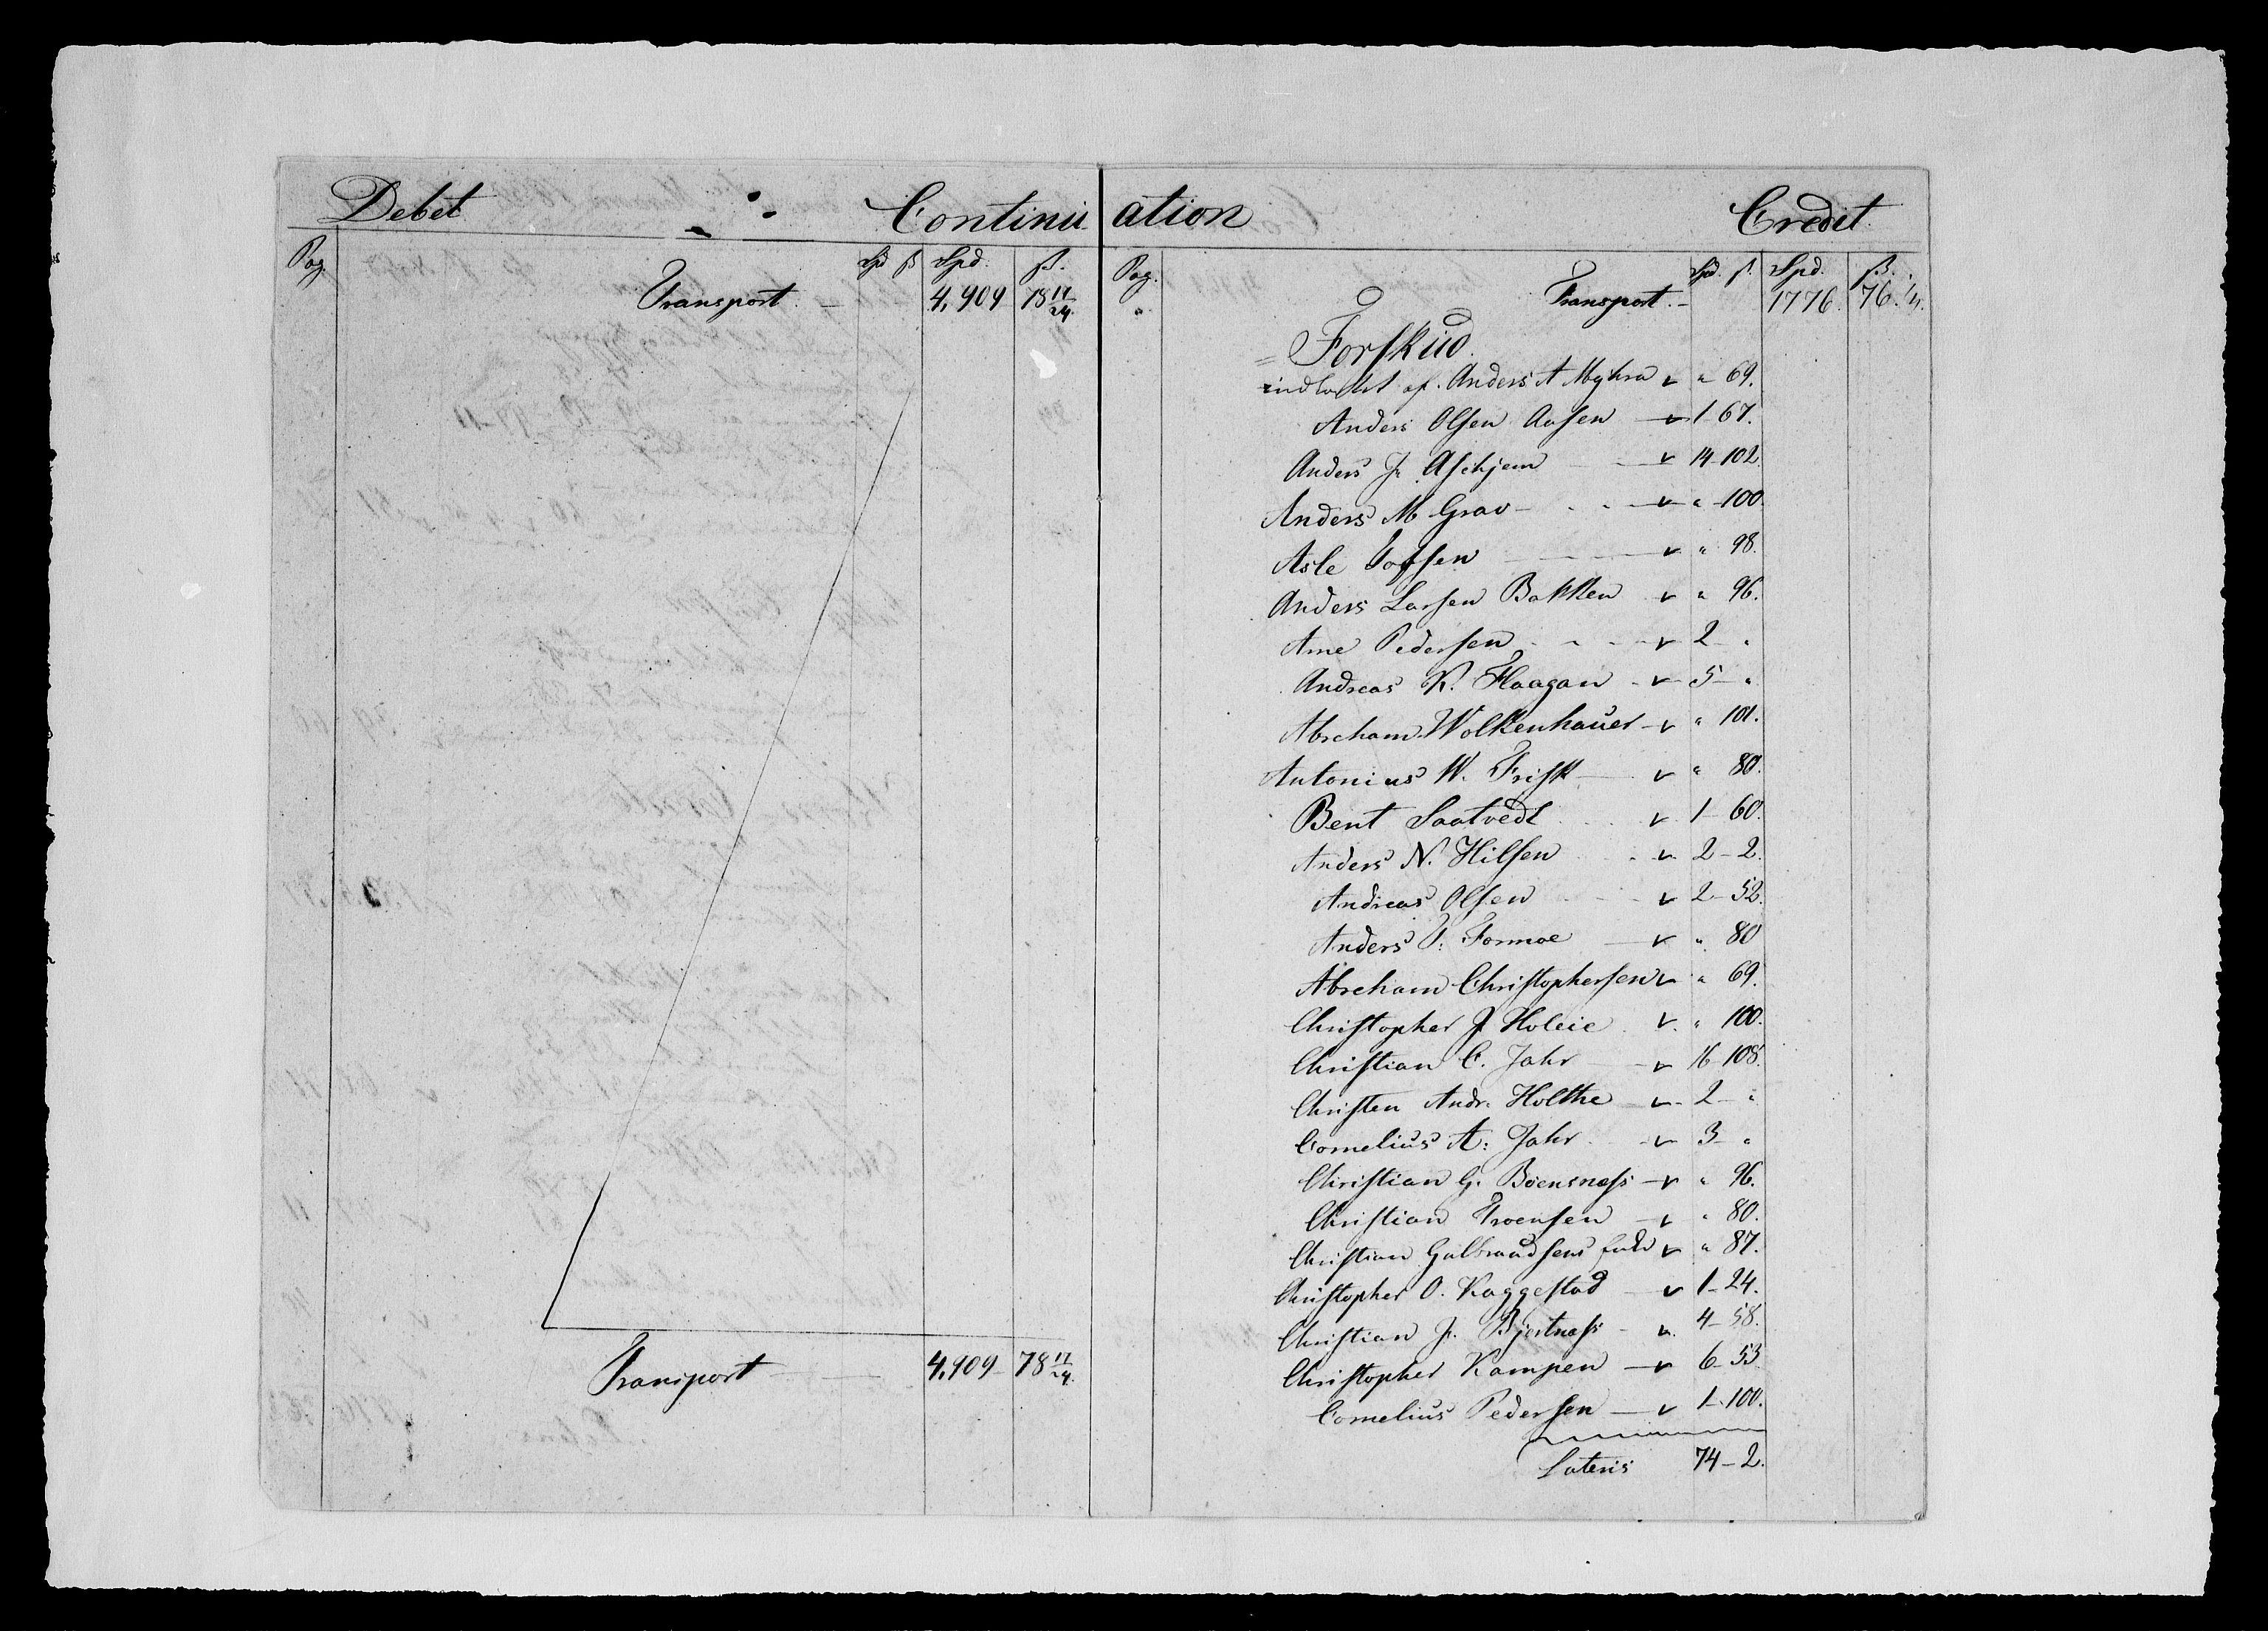 Debet Continu ation Credit
Pag. Spd ß Spd. ß. Pag. Spd. ß. Spd. ß.
Transport 4,909 78 17/24 Transport 1776. 76. 1/4.
Forskud
indbetalt af Anders A Myhra v " 69.
Anders Olsen Aasen v 1 67.
Anders J. Aschjem v 14 102
Anders M Grav v " 100
Asle v " 98.
Anders Larsen Bakken v " 96.
Arne Pedersen v 2 "
Andreas K. Haagan v 5 "
Abraham Wolkenhauer v " 101.
Antonius W. Frisk v " 80.
Bent Saatvedt v 1 60.
Anders N. Hilsen v 2 - 2.
Andreas Olsen v 2 - 52.
Anders T. Formoe v " 80
Abraham Christophersen v " 69.
Christopher J Holeie v. " 100.
Christian C. Jahr v 16 108.
Christen Andr. Holthe v 2 "
Cornelius A: Jahr v 3 "
Christian G. Boensnæss v " 96.
Christian Troensen v " 80.
Christian Gulbrandsens v " 87.
Christopher O. Kaggestad v 1 - 24.
Christian J. Bjertnæss v. 4 - 58.
Christopher Kampen v 6 - 53
Cornelius Pedersen v 1 - 100.
Transport 4,909 78 17/24.
Lateris 74 - 2.